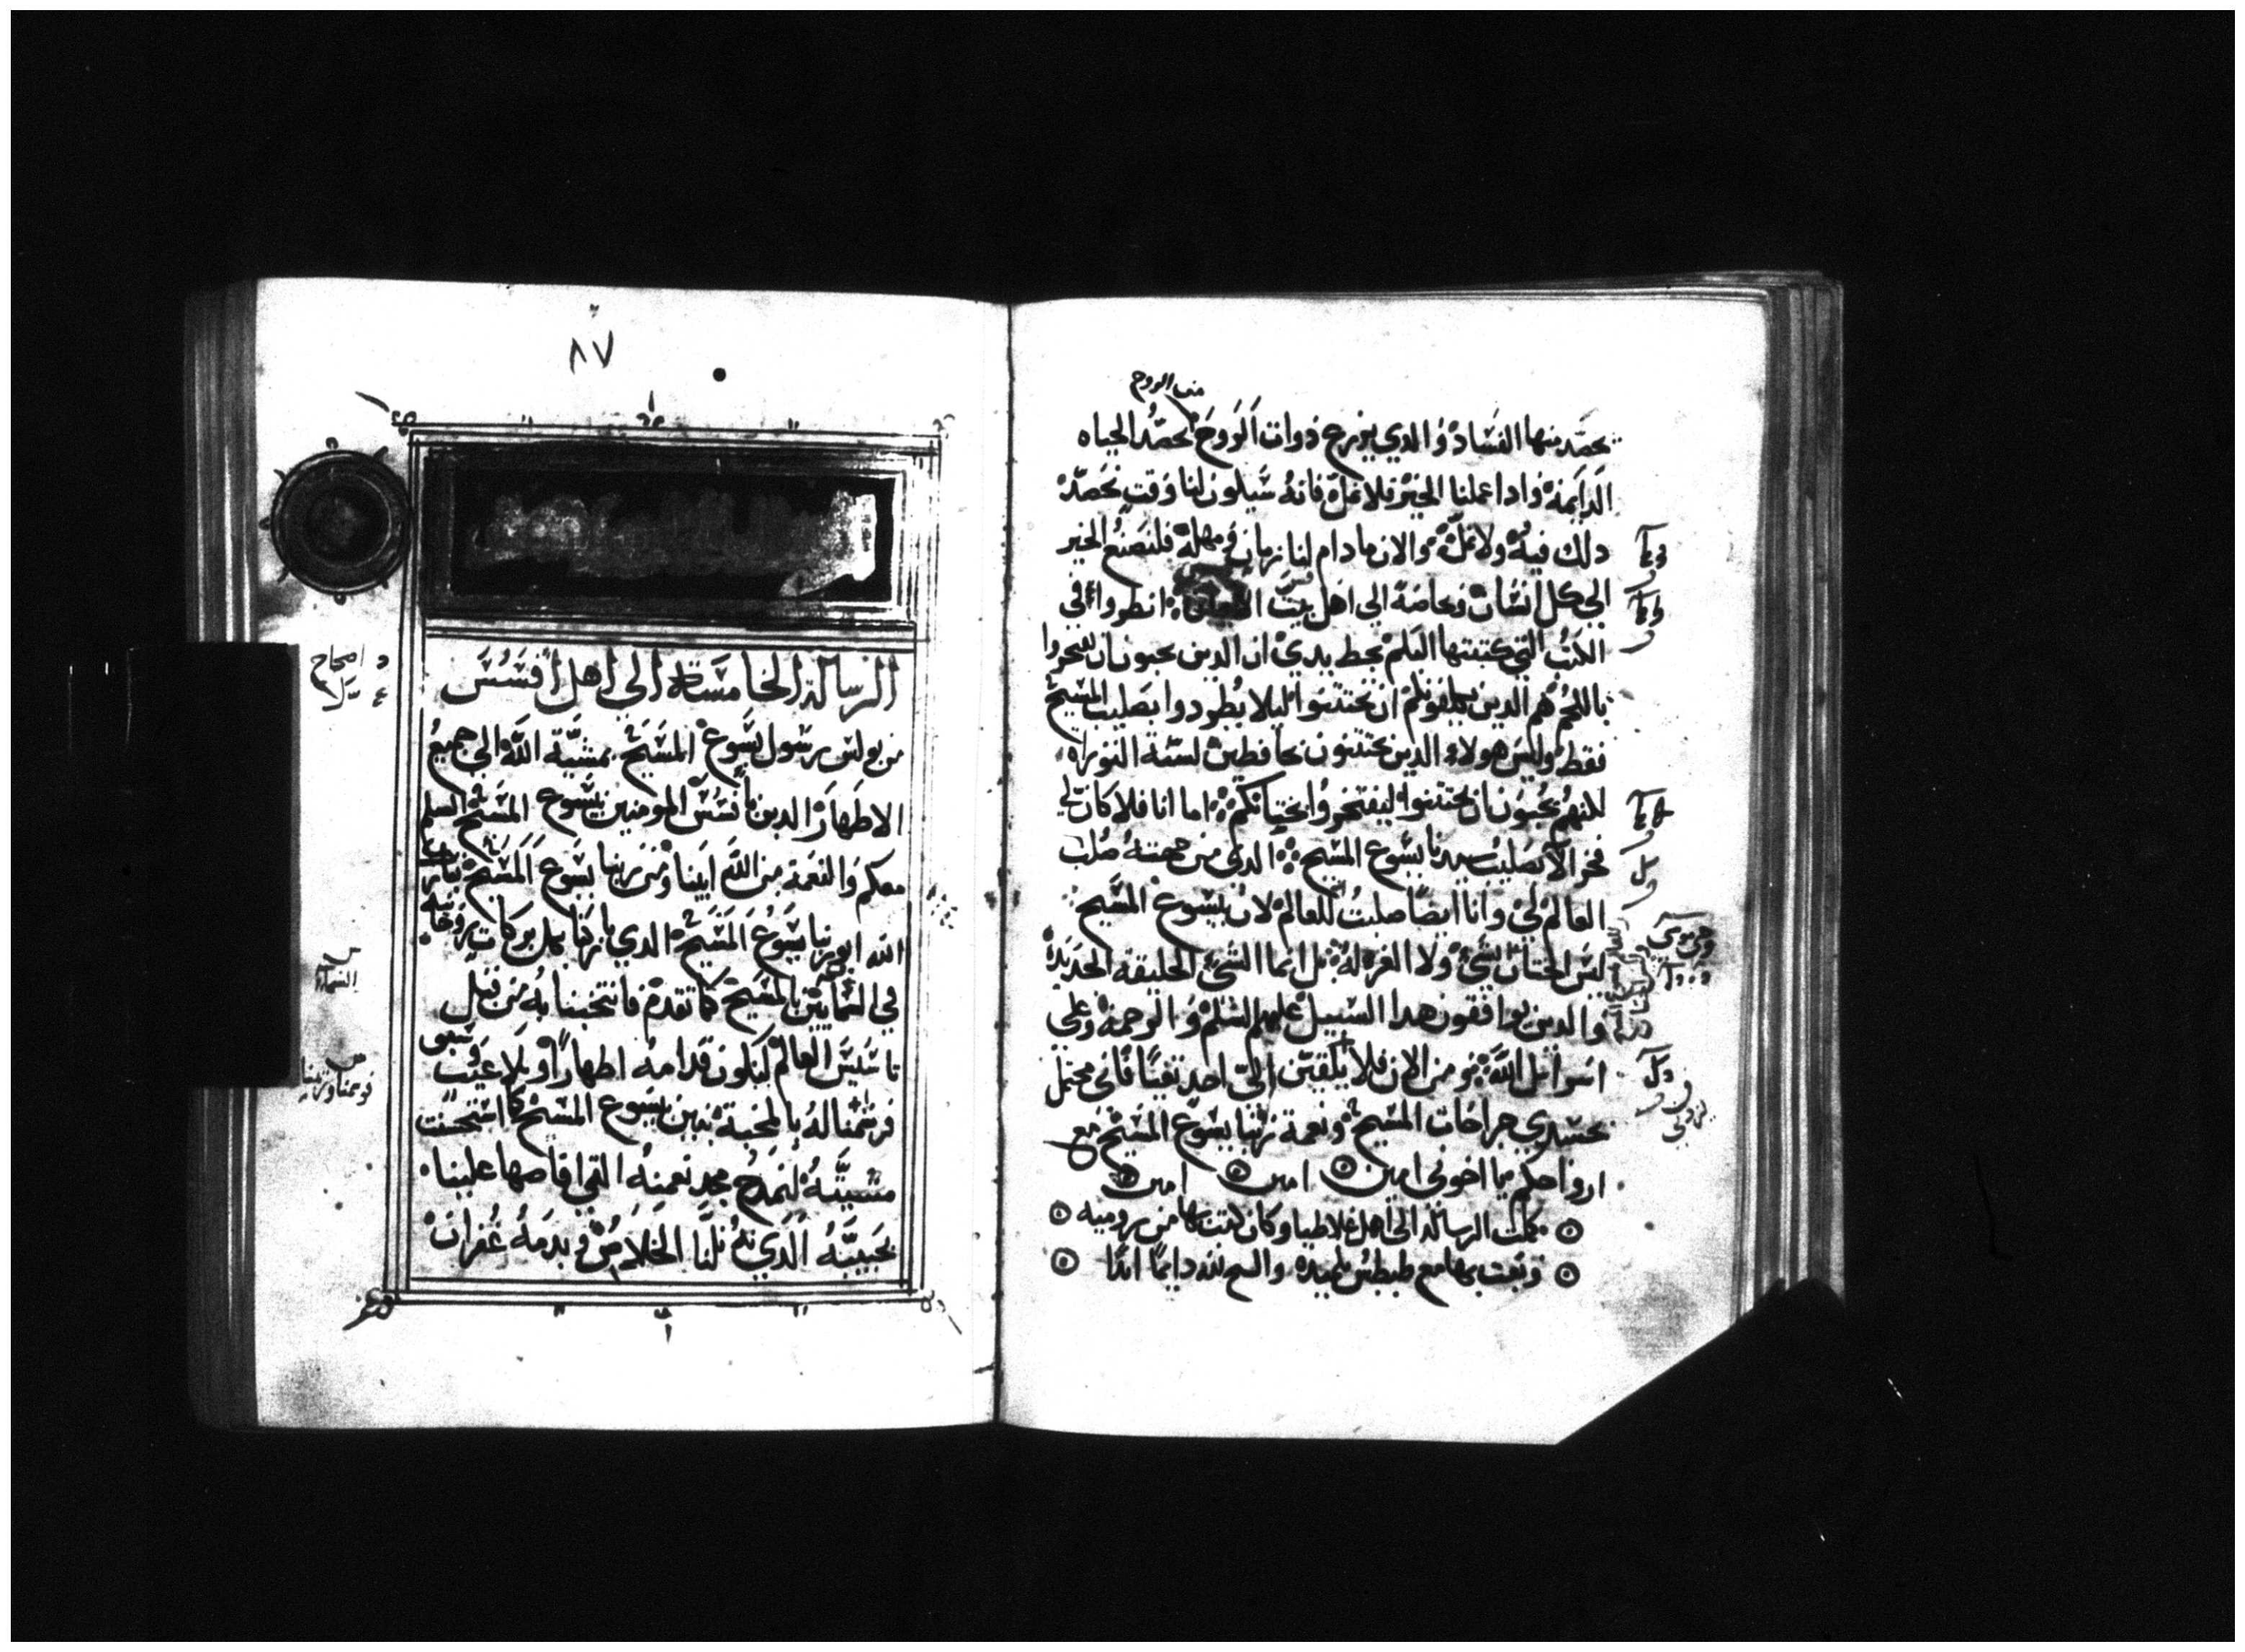 من الروح
يحصد منها الفساد والدي يزرع دوات الروح يحصد الحياه
الدايمه وادا عملنا الخير فلا نمل فانه سيكون لنا وقت نحصد
دلك فيه ولا نمل والان مادام لنا زمان ومهله فلنصنع الخير
الي كل انسان وخاصة الي اهل بيت انظروا في
الكتب التي كتبتها اليكم بخط يدي ان الدين يحبون ان يفتخروا
باللحم هم الدين يكلفونكم ان تختتنوا ليلا يطردوا بصليب المسيح
فقط وليس هولاء الدين يختتنون بحافظين لسنة التوراه
لكنهم يحبون ان تختتنوا ليفتخروا بختانكم اما انا فلا كان لي
فخر الا بصليب سيدنا يسوع المسيح الدي من جهته صلب
العالم لي وانا ايضا صلبت للعالم لان بيسوع المسيح
ليس الختان بشي ولا الغرله بل انما الشي الخليقه الجديده
والدين يوافقون هدا السبيل عليهم السلم والرحمه وعلي
اسرايل الله ومن الان فلا يلقين الي احد تعبا فاني محتمل
بجسدي جراحات المسيح ونعمة ربنا يسوع المسيح مع
ارواحكم يا اخوتي امين امين امين
كملت الرساله الي اهل غلاطيا وكان كتب بها من روميه
وبعث بها مع طيطس تلميده والسبح لله دايما ابدا
٨٧
الرساله الخامسة الي اهل افسس
من بولس رسول يسوع المسيح بمشية الله الي جميع
الاطهار الدين بافسس المومنين بيسوع المسيح السلم
معكم والنعمة من الله ابينا ومن ربنا يسوع المسيح تبارك
الله ابو ربنا يسوع المسيح الدي باركنا بكل بركات روحانيه
في السمايين بالمسيح كما تقدم فانتخبنا به من قبل
تاسيس العالم لنكون قدامه اطهارا وبلا عيب وسبق
فرسمنا له بالمحبة بنين بيسوع المسيح كما استحسنت
مشيته لنمدح مجد نعمته التي افاضها علينا
بحبيبه الدي به نلنا الخلاص وبدمه غفران